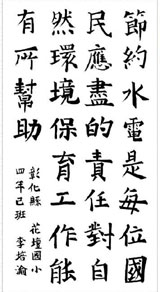 節約水電是每位國
民應盡的責任對自
然環境保育工作能
有所幫助
彰化縣 花壇國小
四年己班 李培瀚